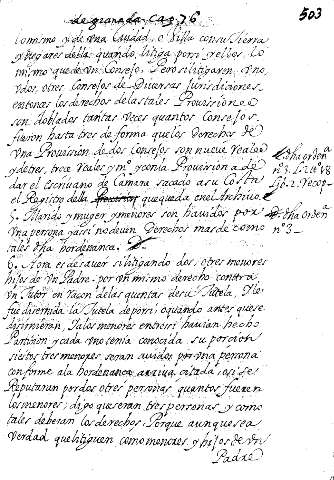 de granada. Cap. 76
503
lo mismo y de una Ciudad, o Villa con su tierra
y lugares della, quando litiga por si y ellos. Lo
mismo que de Un Consejo. Pero si litigaren Uno
dos, otros Consejos de Diversas jurisdiciones
entonces los derechos de las tales Provisiones
son doblados tantas veces quantos Consejos
fueren hasta tres de forma que los derechos de
Una Provision de dos Consejos son nueve reales
y de tres, trece reales y m.º y con la Provision a de
dar el escrivano de Camara sacado a su Costa
el Registro de la Provision que queda en el Archivo.
5. Marido y muger y menores son havidos por
Una persona y assi no deven Derechos mas de como
tales dha hordenanza.
6. Aora es de saver si litigando dos, o tres menores
hijos de Un Padre por Un mismo derecho contra
Un Tutor en racon de las quentas de su Tutela, y le
fue discernida la Tutela de por si o quando antes que se
discirnieran, y a los menores entre si havian hecho
Particion y cada uno tenia conocida su porcion
si estos tres menores seran avidos por Una persona
conforme a la hordenanza arriva citada, o si se
Reputaran por dos o tres personas, quantos fueren
los menores; digo que seran tres personas, y como
tales deveran los derechos. Porque aunque sea
verdad que litiguen como menores y hijos de Un
Padre
dha orden.ª
n.º 3. L. 2 t. 8
lib. 2. recop.
dha orden.ª
n.º 3